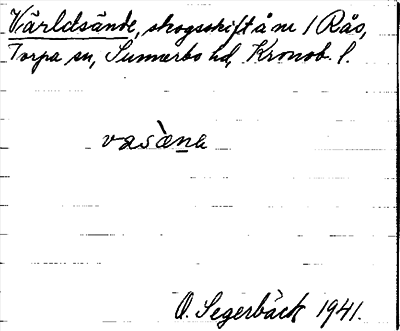 Världsände, skogsskift å nr 1 Rås,
Torpa sn, Sunnerbo hd, Kronob. l.
vasὰna
O. Segerbäck 1941.